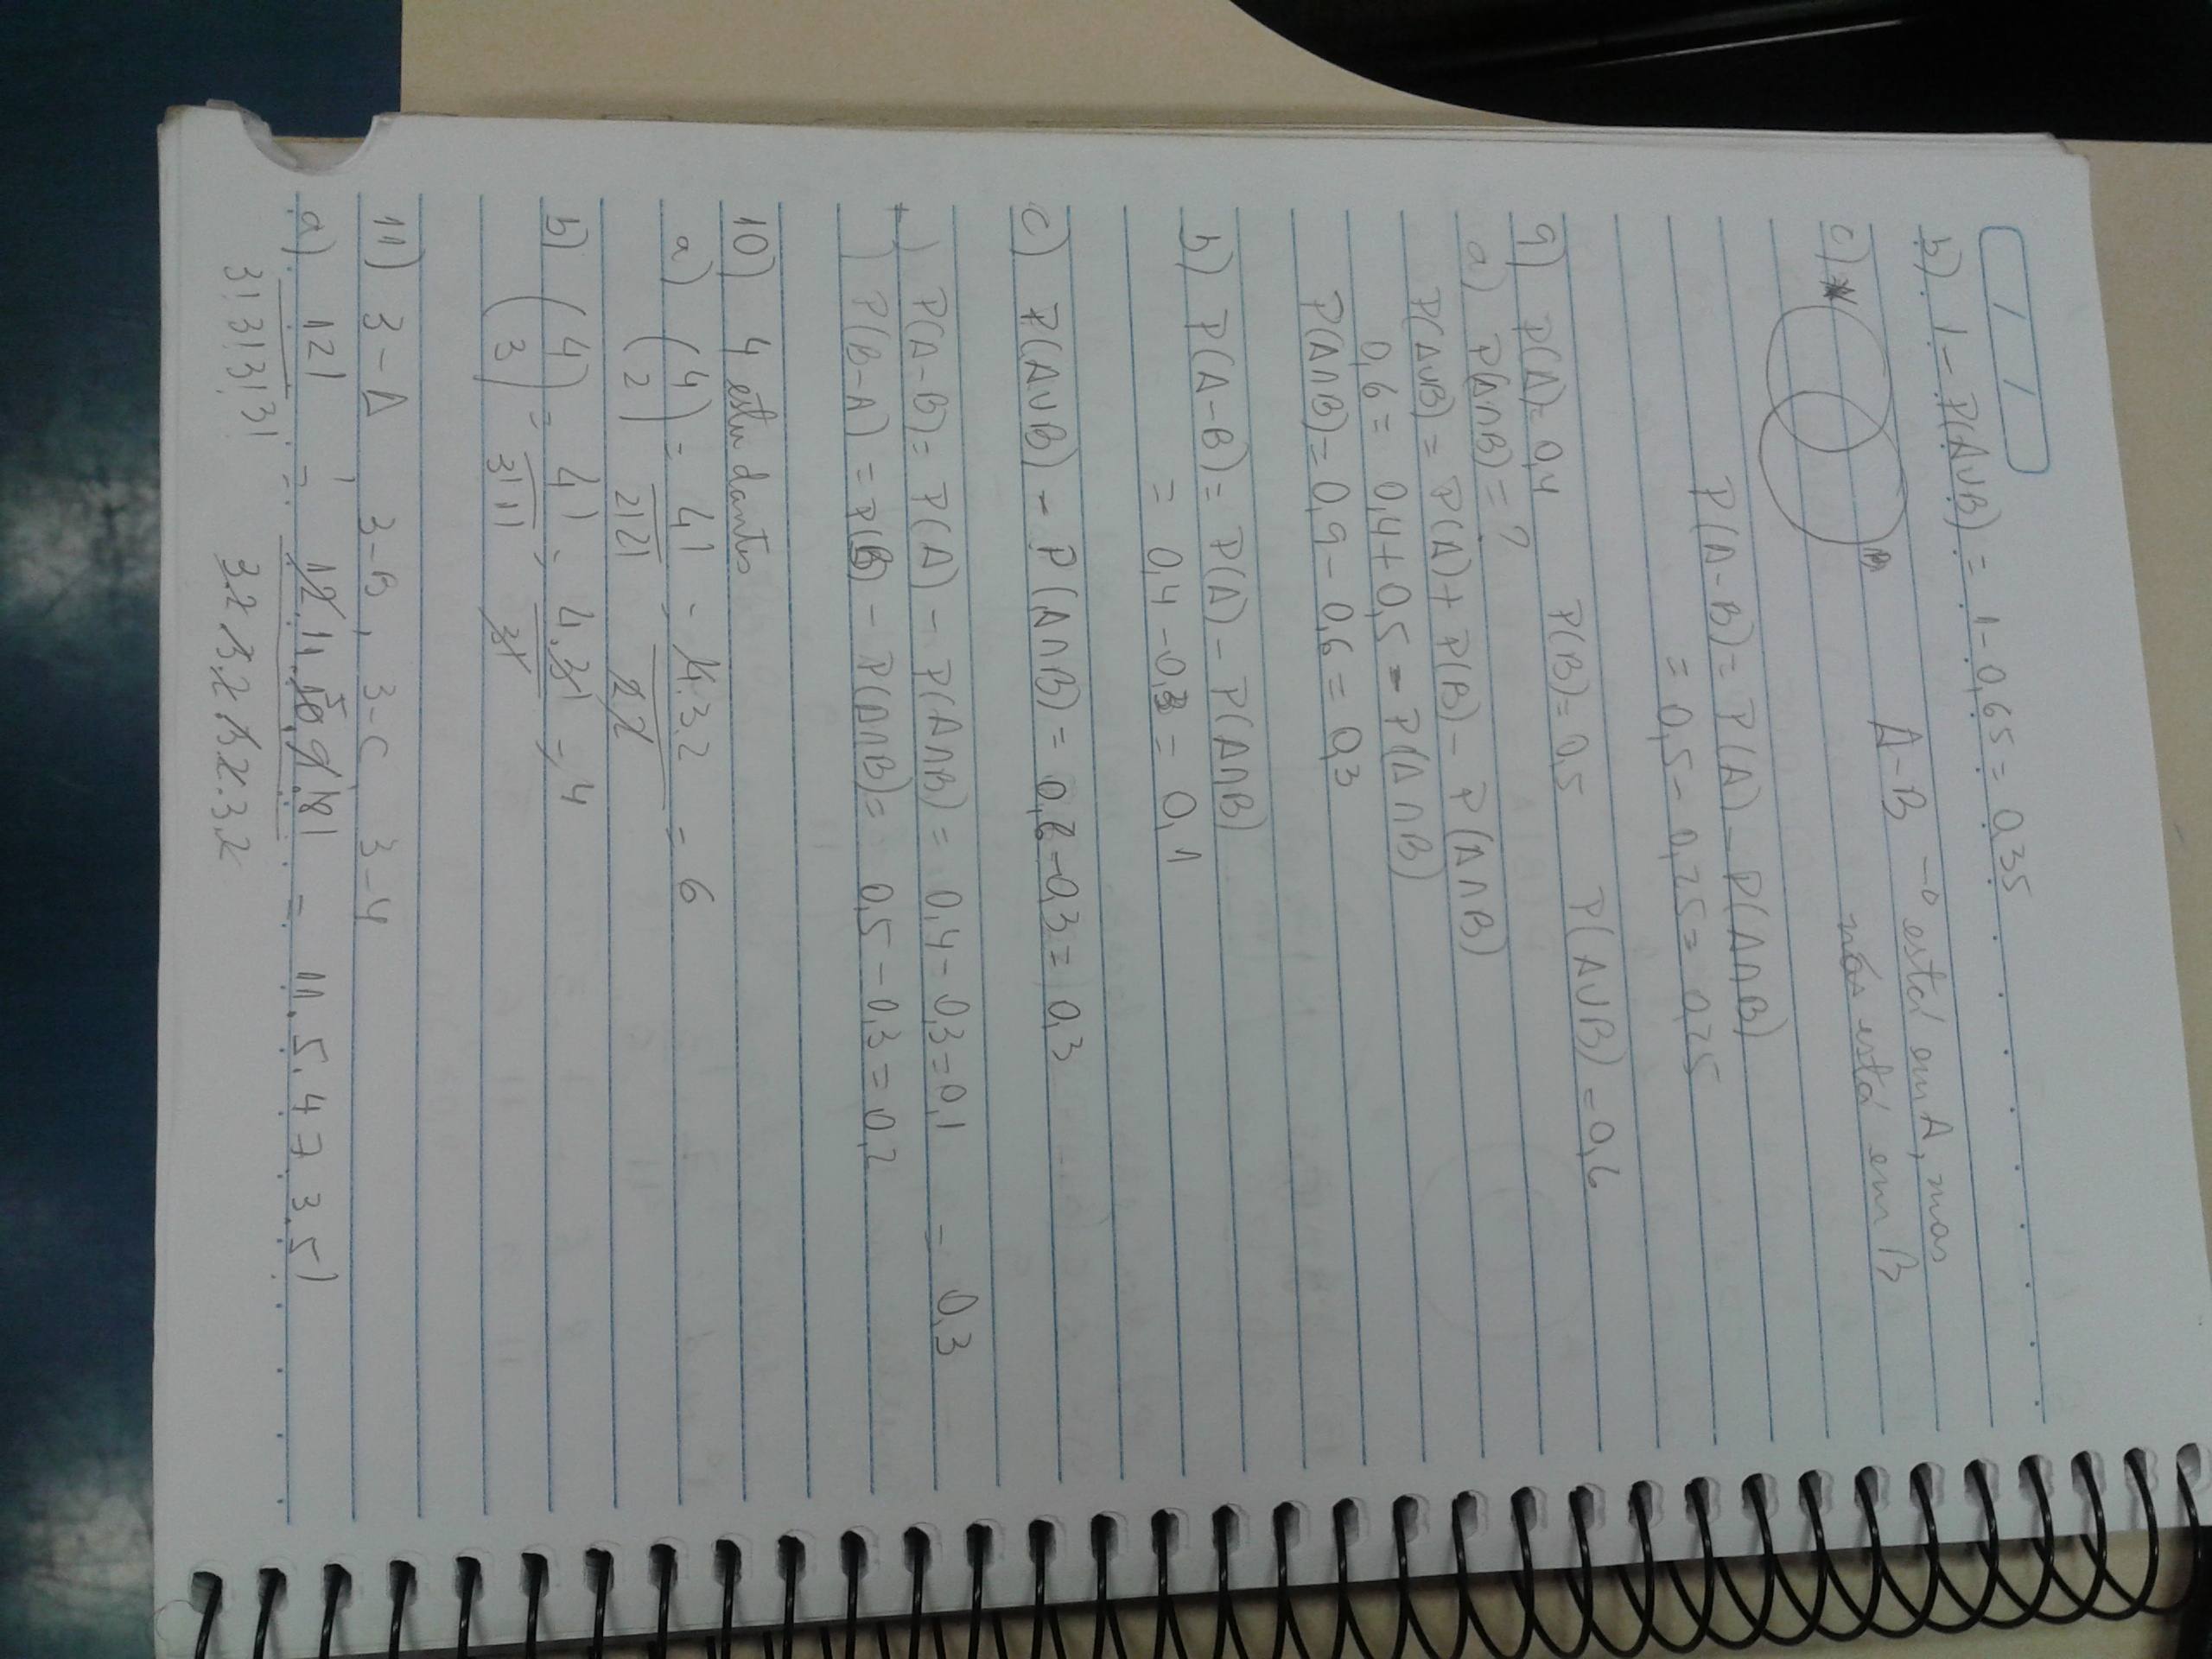 / /
b) 1 - P(A∪B) = 1 - 0,65 = 0,35
c) A B A-B → está em A, mas
não está em B
P(A-B) = P(A) - P(A∩B)
= 0,5 - 0,25 = 0,25
9) P(A)= 0,4 P(B)= 0,5 P(A∪B) = 0,6
a) P(A∩B) = ?
P(A∪B) = P(A) + P(B) - P(A∩B)
0,6 = 0,4 + 0,5 - P(A∩B)
P(A∩B) = 0,9 - 0,6 = 0,3
b) P(A-B) = P(A) - P(A∩B)
= 0,4 - 0,3 = 0,1
c) P(A∪B) - P(A∩B) = 0,6 - 0,3 = 0,3
P(A-B) = P(A) - P(A∩B) = 0,4 - 0,3 = 0,1 = 0,3
P(B-A) = P(B) - P(A∩B) = 0,5 - 0,3 = 0,2
10) 4 estudantes
a) (4 2) = 4! / 2!2! = 4.3.2 / 2.2 = 6
b) (4 3) = 4! / 3!1! = 4.3! / 3! = 4
11) 3-A 3-B, 3-C 3-4
a) 12! / 3!3!3!3! = 12.11.10.9.8! / 3.2.3.2.3.2.3.2 = 11.5.4.7.3.5!